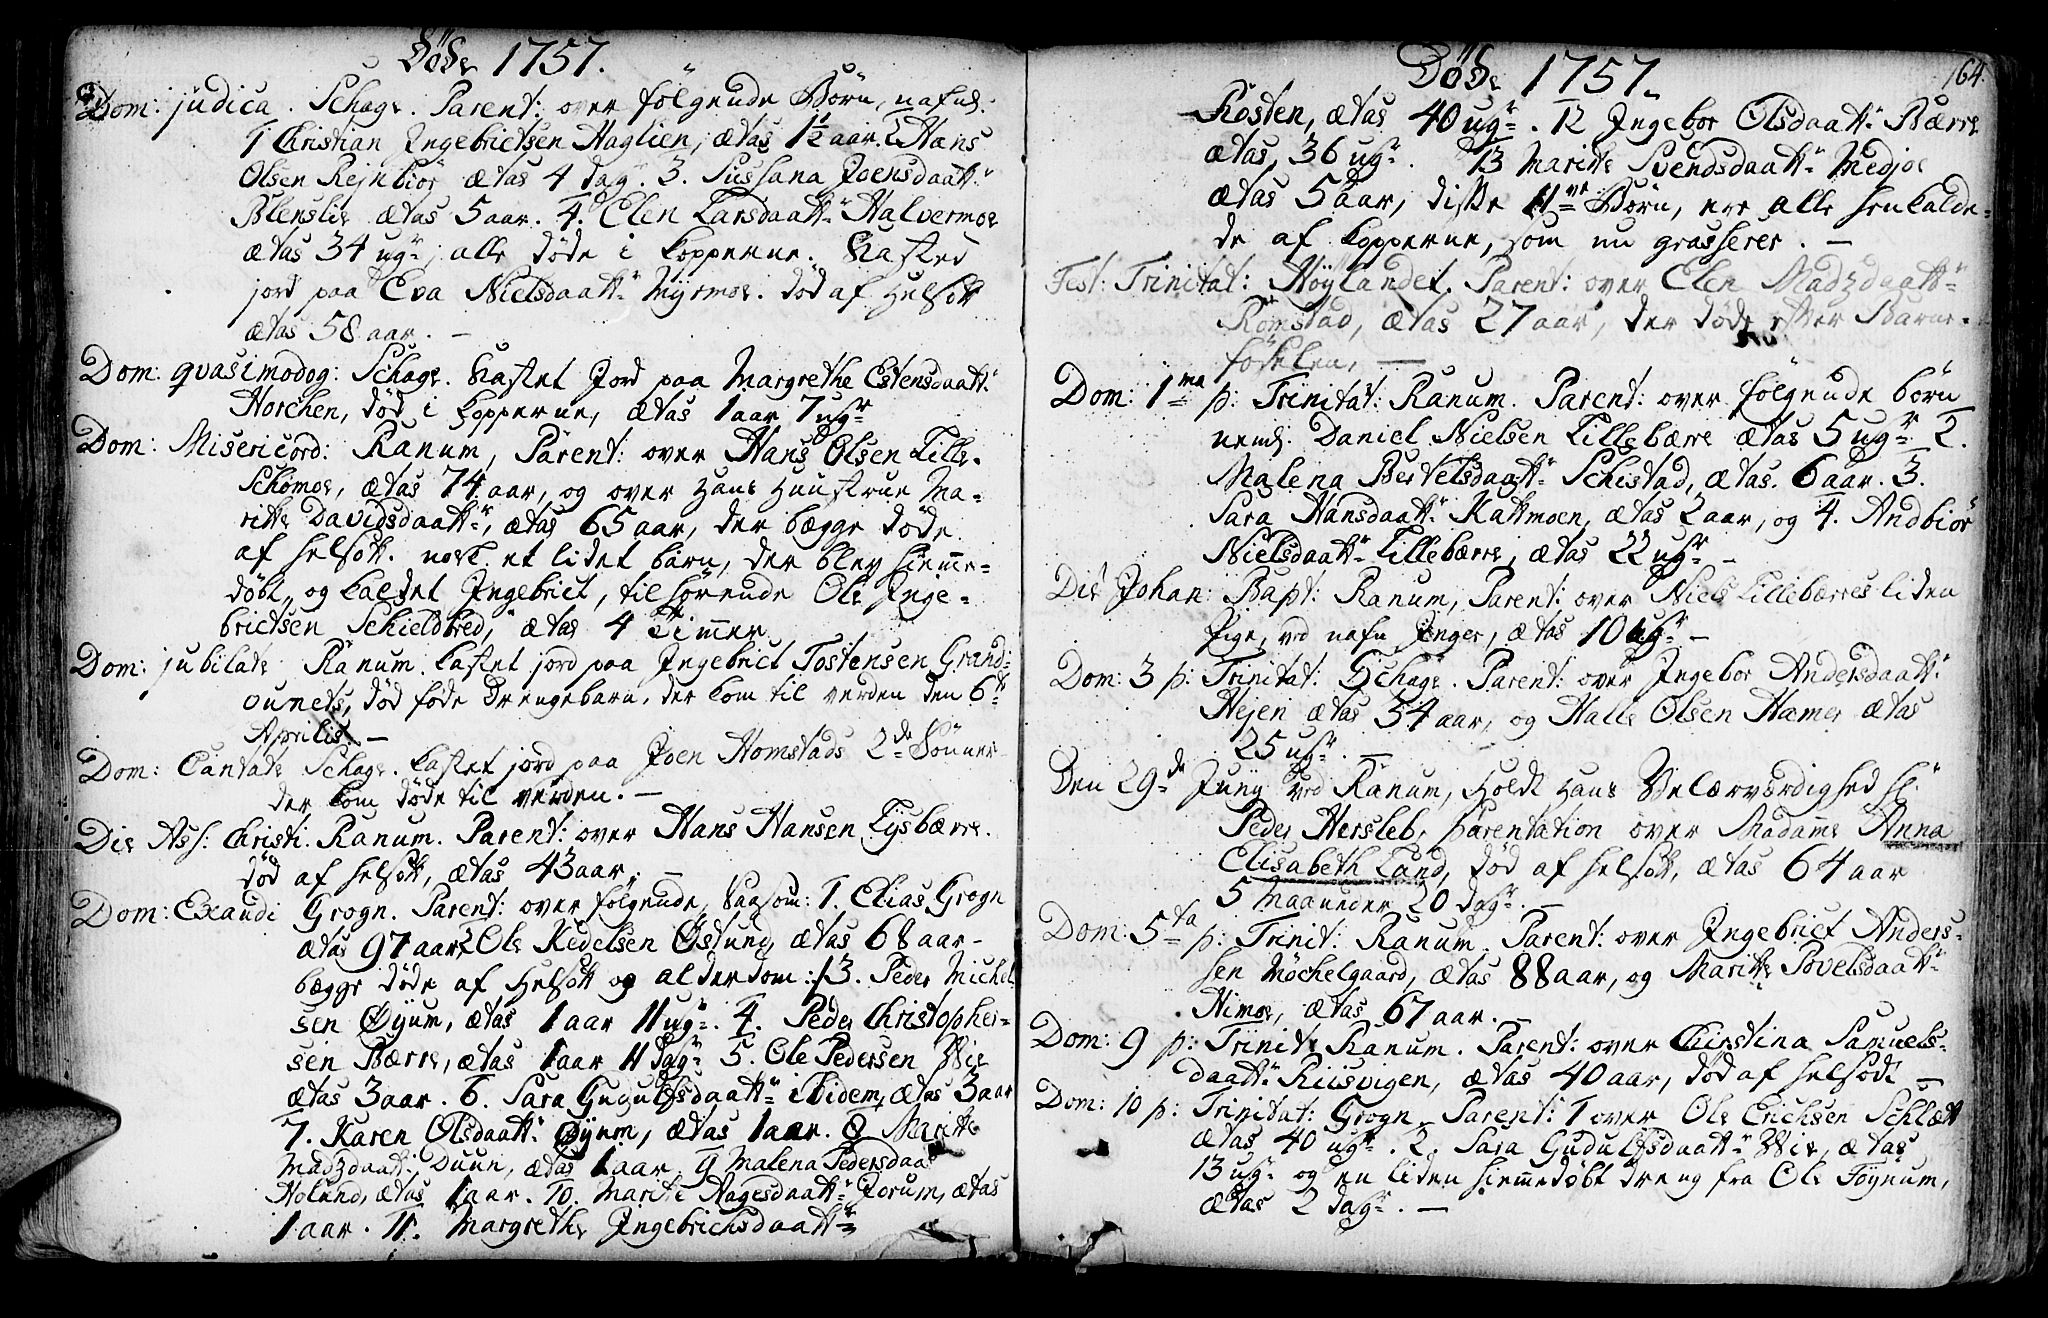 Døde 1757.
Dom: judica. Schage. Parent: over følgende Børn, nafnl:
1 Christian Ingebrictsen Haglien, ætas 1½ aar. 2 Hans
Olsen Rejnbiør ætas 4 dag: 3. Sussana Joensdaatt:
Blenslie ætas 5 aar. 4. Elen Larsdaatt: Halvermoe
ætas 34 ugr, alle døde i kopperne. Kasted
jord paa Eva Nielsdaatt: Myrmoe. død af Helsott
ætas 58 aar. —
Dom: quasimodog: Schage. Kastet Jord paa Margrethe Estensdaatt:
Horchen, død i kopperne, ætas 1 aar 7 ugr
Dom: Misericord: Ranum, Parent: over Hans Olsen Lille-
Schomoe, ætas 74 aar, og over Hans Hustrue Ma-
ritte Davidsdaattr, ætas 65 aar, der bægge døde
af helsott. nock et lidet barn, der blev hiemme-
døbt, og kaldet Ingebrict, tilhørende Ole Inge-
brictsen Schieldbred, ætas 4 Timer
Dom: jubilate Ranum. kastet jord paa Ingebrict Tostensen Grandi-
ounets, død føde Drengebarn, der kom til verden den 6te
Aprilis. —
Dom: Cantate Schage. kastet jord paa Joen Homstads 2de Sønner
der kom døde til verden. —
Die Ass: Christi. Ranum. Parent: over Hans Hansen Lysbærre.
død af helsott, ætas 43 aar. —
Dom: Exaudi Grogn. Parent: over følgende, saasom: 1. Elias Grogn
ætas 97 aar 2 Ole Kedelsen Østung ætas 68 aar –
bægge døde af Helsott og alderdom: 3. Peder Michel
sen Øyum, ætas 1 aar 11 ugr. 4. Peder Christopher-
sen Bærre, ætas 1 aar 11 dagr 5. Ole Pedersen Wie
ætas 3 aar. 6. Sara Gudulfsdaatt: ibidem, ætas 3 aar
7. Karen Olsdaatt: Øyum, ætas 1 aar. 8 Maritte
Madzdaatt: Duun, ætas 1 aar 9 Malena Pedersdaa
Holund, ætas 1 aar. 10. Maritte Aagesdaatt: Jorum, ætas
1 aar. 11. Margrethe Ingebrichsdaatt:
Døde 1757.
164
Rosten, ætas 40 ugr. 12 Ingebor Olsdaatt: Bærre
ætas, 36 ugr. 13 Maritte Svendsdaatt: Medjoe
ætas 5 aar, disse 11ve Børn, ere alle henkalde-
de af kopperne, som nu grasserer. —
Fest: Trinitat: Høylandet. Parent: over Elen Madzdaatt:
Romstad, ætas 27 aar, der døde efter Barne-
fødselen. —
Dom: 1ma p: Trinitat: Ranum. Parent: over følgende børn
neml. Daniel Nielsen Lillebærre ætas 5 ugr 2.
Malena Bertelsdaatt: Schistad, ætas. 6 aar. 3.
Sara Hansdaatt: Kattmoen, ætas 2 aar, og 4. Andbiør
Nielsdaatt: Lillebærre, ætas 22 ugr —
Die Johan: Bapt: Ranum, Parent: over Niels Lillebærres liden
Pige, ved nafn Inger, ætas 10 ugr —
Dom: 3 p: Trinitat: Schage. Parent: over Ingebor Andersdaatt:
Hejen ætas 34 aar, og Halle Olsen Hæmer ætas
25 ugr. —
Den 29de Junij ved Ranum, holdt Hans Velærværdighed Hr
Peder Hersleb, Parentation over Madame Anna
Elisabeth Lund, død af helsott, ætas 64 aar
5 maaneder 20 dagr. —
Dom: 5ta p: Trinit: Ranum. Parent: over Ingebrict Anders-
sen Møchelgaard, ætas 88 aar, og Maritte Povelsdaatt:
Himoe, ætas 67 aar. —
Dom: 9 p: Trinit: Ranum. Parent: over Christina Samuels-
daatt: Riisvigen, ætas 40 aar, død af helsodt —
Dom: 10 p: Trinitat: Grogn. Parent: 1 over Ole Erichsen Schlætt
ætas 40 ugr. 2. Sara Gudulfsdaatt: Wie, ætas
13 ugr og en liden hiemmedøbt dreng fra Ole Føynum,
ætas 2 dagr. —